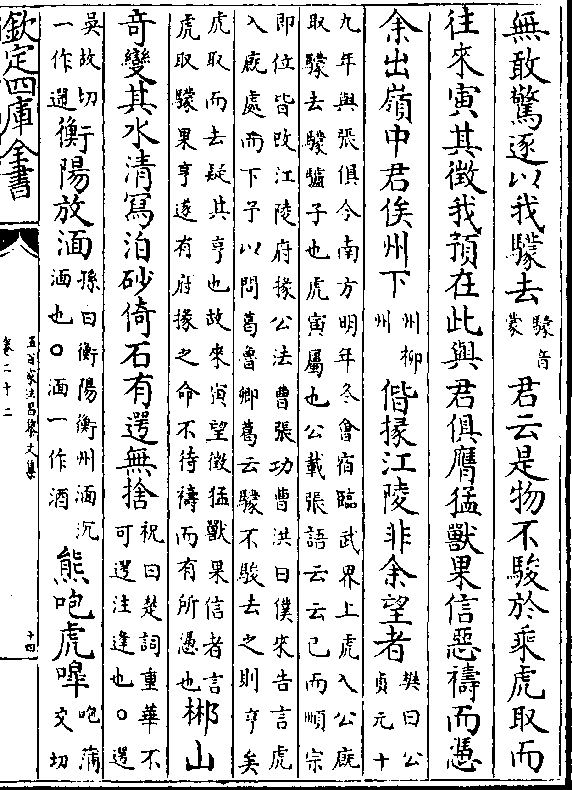 無敢驚逐以我䮫去䮫音蒙君云是物不駿於乘虎取而
往來寅其徵我預在此與君俱膺猛獸果信惡禱而憑
余出嶺中君俟州下州柳州偕掾江陵非余望者樊曰公貞元十
九年與張俱令南方明年冬會宿臨武界上虎入公廐
取䮫去䮫驢子也虎寅屬也公載張語云云已而順宗
即位皆改江陵府掾公法曹張功曹洪曰僕來告言虎
入廐處而下予以問葛魯卿葛云䮫不駿去之則亨矣
虎取而去疑其亨也故來寅望徵猛獸果信者言
虎取䮫果亨遂有府掾之命不待禱而有所憑也郴山
奇變其水清寫泊砂倚石有遌無捨祝曰楚詞重華不可遌注逢也○遌
吳故切一作選衡陽放湎孫曰衡陽衡州湎沉湎也○湎一作酒熊咆虎嘷咆蒲交切
欽定四庫全書
五百家注昌黎文集
卷二十二
十四